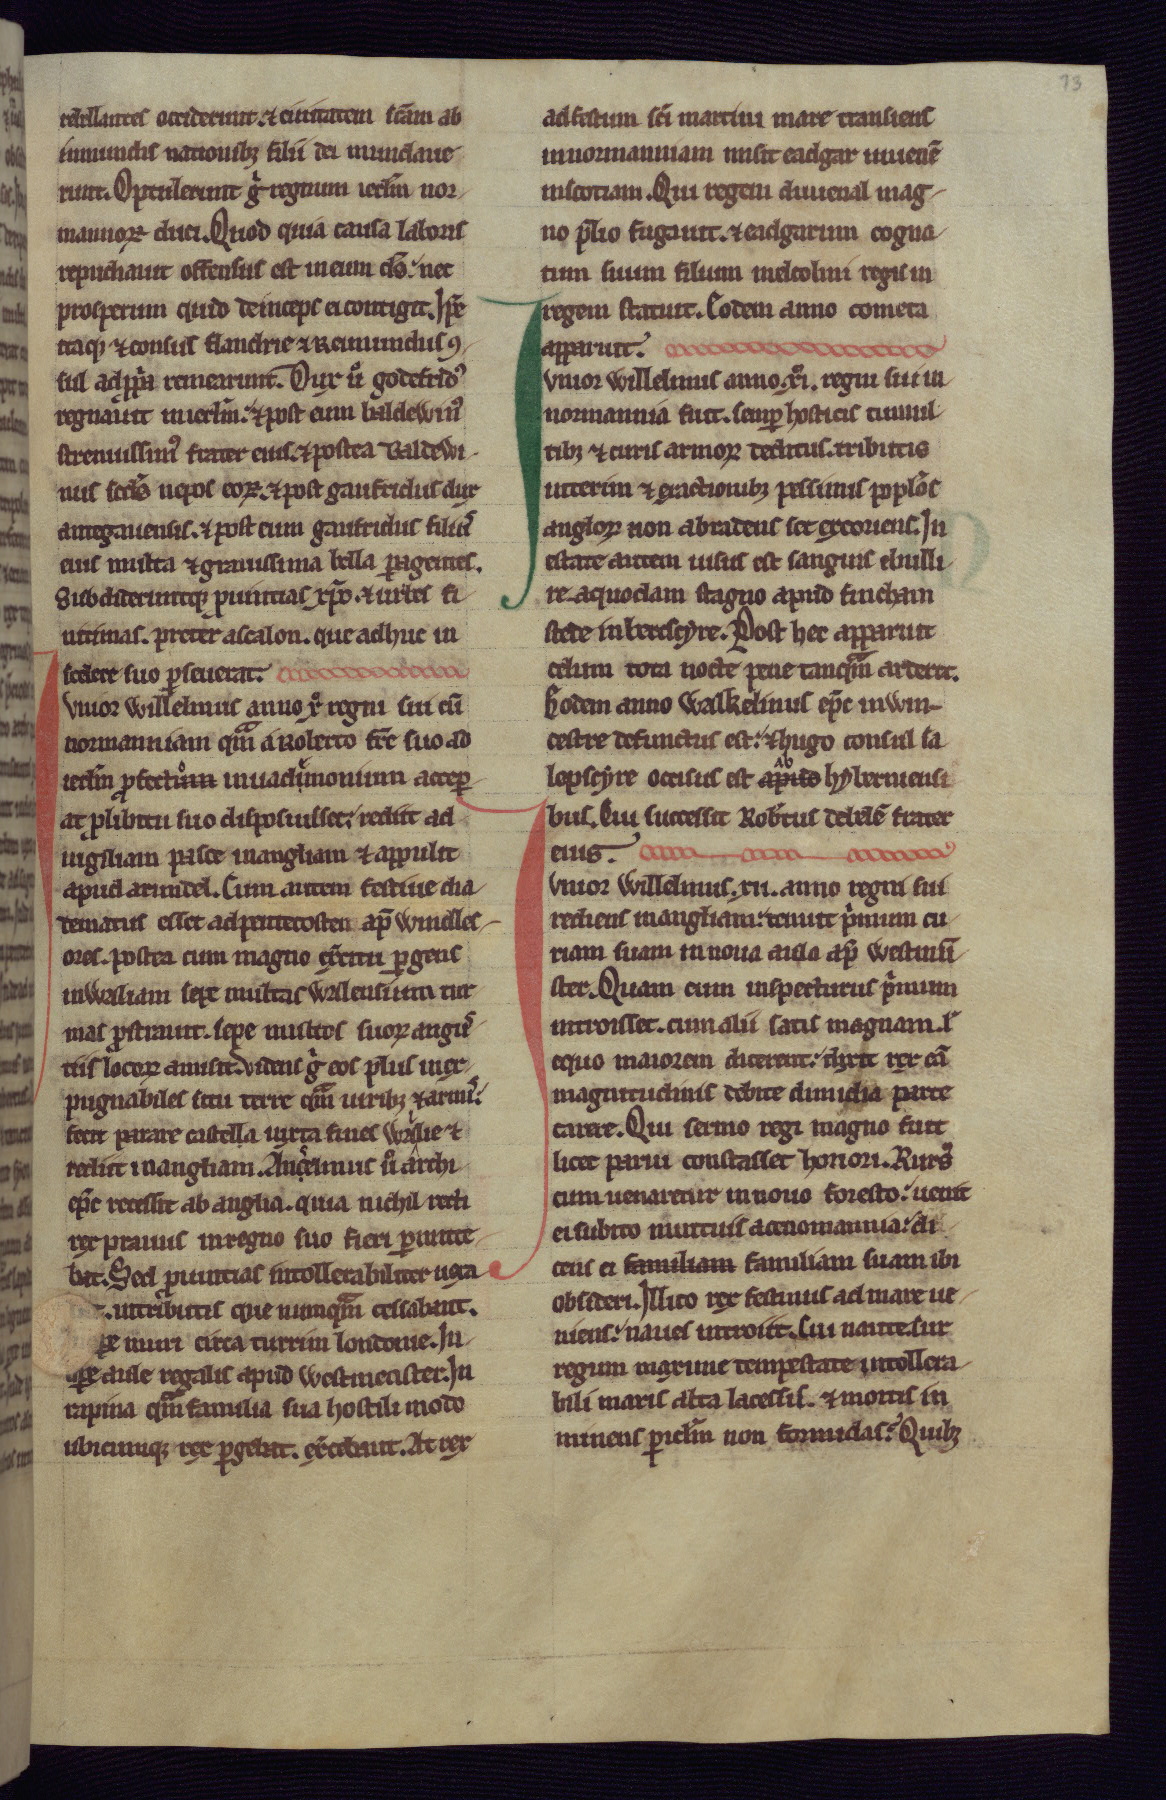 73
rebellantes occiderunt. ⁊ ciuitatem sc̄am ab
inmundis nationibꝫ filii dei mundaue
runt. Optulerunt g̊ regnum ierl̄m nor-
mannoꝝ duci. Quod quia causa laboris
repudiauit offensus est in eum ds̄. nec
prosperum quid deinceps ei contigit. Ip̄e
itaqꝫ ⁊ consul flandrie ⁊ Reimundus ꝯ-
sul ad ꝓp̄a remearunt. Dux ū godefridꝰ
regnauit in ierl̄m. ⁊ post eum baldewinꝰ
strenuissimꝰ frater eius. ⁊ postea Baldewi-
nus sc̄ds nepos eoꝝ. ⁊ post gaufridus dux
antegauensis. ⁊ post eum gaufridus filiꝰ
eius multa ⁊ grauissima bella ꝑagentes.
Subdideruntqꝫ ꝓuintias xp̄o. ⁊ urbes fi-
nitimas. preter ascalon. que adhuc in
scelere suo ꝑseuerat.
Vnior Willelmus anno x̊ regni sui cū
normanniam qm̄ a Roberto fr̄e suo ad
ierl̄m ꝓfecturo inuadimonium accep-
at ꝓ libitu suo disposuisset; rediit ad
uigiliam pasce in angliam ⁊ appulit
apud arundel. Cum autem festiue dia
dematus esset ad pentecosten ap̄ Windles-
ores. postea cum magno ex̄citu ꝑgens
in Waliam sepe multas Walensium tur
mas ꝓstrauit. sepe multos suoꝝ angus̄
tiis locoꝝ amisit. videns g̊ eos plus inex-
pugnabiles situ terre qm̄ uiribꝫ ⁊ armis:
fecit parare castella iuxta fines Walie ⁊
rediit in angliam. Anselmus ū archi
ep̄c recessit ab anglia. quia nichil recti
rex prauus in regno suo fieri ꝑmitte-
bat. Sed ꝓuintias intollerabiliter uexa
. in tributis que numqm̄ cessabant.
pe muri circa turrim londonie. In
pe aule regalis apud Westmenister. In
rapina qm̄ familia sua hostili modo
ubicumqꝫ rex ꝑgebat. ex̄cebant. At rex
ad festum sc̄i martini mare transiens
in normanniam misit eadgar iuuenē
in scotiam. Qui regem duuenal mag-
no p̄lio fugauit. ⁊ eadgarum cogna-
tum suum filium melcolmi regis in
regem statuit. Eodem anno cometa
apparuit.
Vnior Willelmus anno .xi. regni sui in
normannia fuit. semꝑ hosticis tumul-
tibꝫ ⁊ curis armoꝝ deditus. tributis
interim ⁊ exactionibꝫ pessimis pop̄los
angloꝝ non abradens set excoriens. In
estate autem uisus est sanguis ebulli-
re a quodam stagno apud fincham
stede in bercscyre. Post hec apparuit
celum tota nocte pene tanqm̄ arderet.
Eodem anno Walkelinus ep̄c in win-
cestre defunctus est: ⁊ hugo consul sa
lopscyre occisus est apud ab hyberniensi
bus. Cui successit Robertus de belēe frater
eius.
Vnior Willelmus .xii. anno regni sui
rediens in angliam: tenuit p̄mum cu-
riam suam in noua aula ap̄ Westmūi
ster. Quam cum inspecturus p̄mum
introisset. cum alii satis magnam. l̄
equo maiorem dicerent: dixit rex eā
magnitudinis debite dimidia parte
carere. Qui sermo regi magno fuit
licet parui constasset honori. Rursꝰ
cum uenaretur in nouo foresto: uenit
ei subito nuntius a cenomannia: di
cens ei familiam familiam suam ibi
obsideri. Illico rex festinus ad mare ue-
niens: naues introiit. Cui naute. cur
regum maxime tempestate intollera-
bili maris alta lacessis. ⁊ mortis in
minens ꝑicl̄m non formidas: Quibꝫ